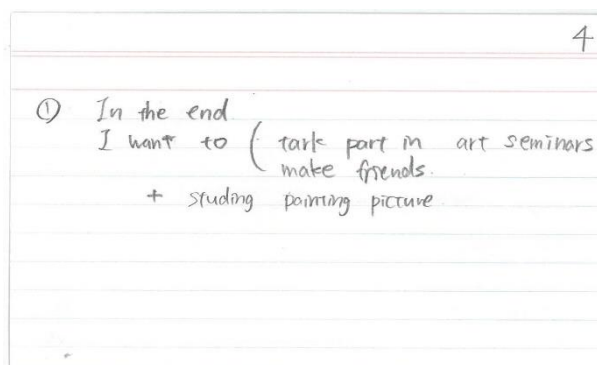 4
① In the end
I want to ( tark part in art seminars
make friends.
+ studing painting picture